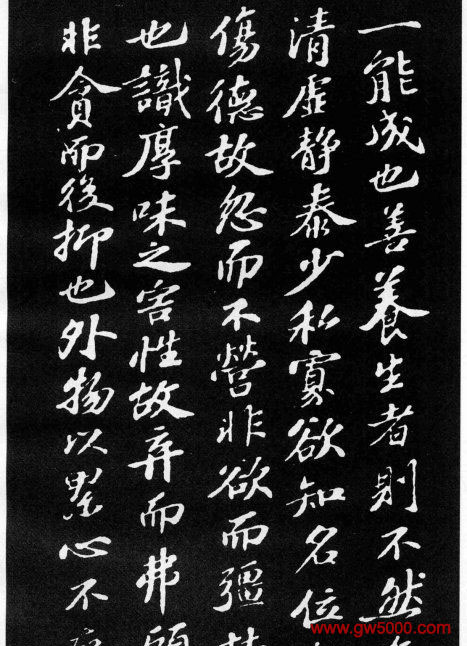 一能成也善養生者則不然
清虛静泰少私寡欲知名位
傷德故忽而不營非欲而彊
也識厚味之害性故弃而弗顧
非貪而後抑也外物以累心不
www.gw5000.com